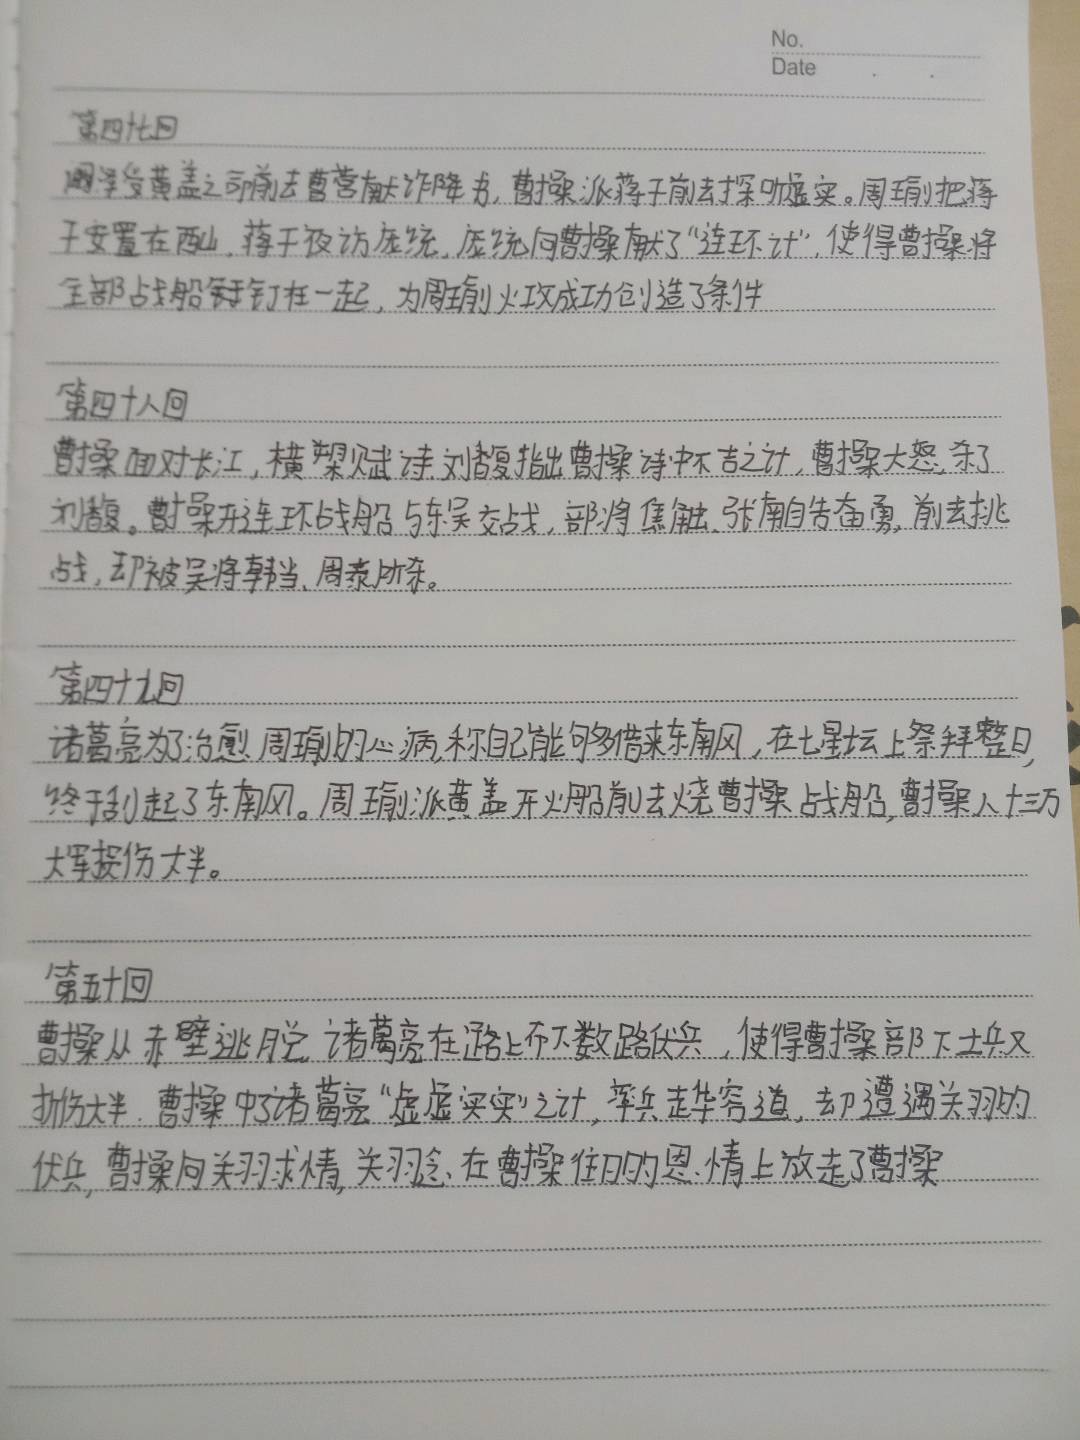 No.
Date
第四十七回
阚泽受黄盖之命前去曹营献诈降书,曹操派蒋干前去探听虚实。周瑜把蒋
干安置在西山,蒋干夜访庞统,庞统向曹操献了“连环计”,使得曹操将
全部战船钉在一起,为周瑜火攻成功创造了条件
第四十八回
曹操面对长江,横槊赋诗.刘馥指出曹操诗中不吉之计,曹操大怒,杀了
刘馥。曹操开连环战船与东吴交战,部将焦触、张南自告奋勇,前去挑
战,却被吴将韩当、周泰所杀。
第四十九回
诸葛亮为了治愈周瑜的心病,称自己能够借来东南风,在七星坛上祭拜整日,
终于刮起了东南风。周瑜派黄盖开火船前去烧曹操战船,曹操八十三万
大军损伤大半。
第五十回
曹操从赤壁逃脱,诸葛亮在路上布下数路伏兵,使得曹操部下士兵又
折伤大半.曹操中了诸葛亮“虚虚实实”之计,率兵走华容道,却遭遇关羽的
伏兵,曹操向关羽求情,关羽念在曹操往日的恩情上放走了曹操